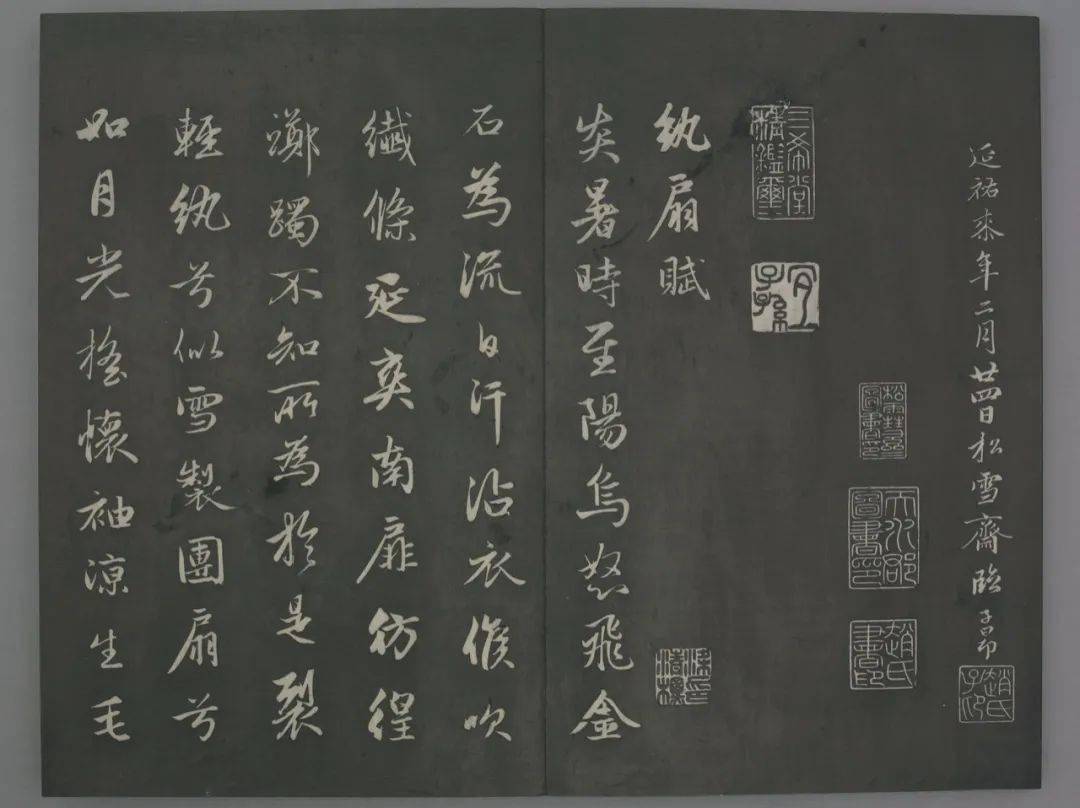 延祐柒年二月廿四日松雪齋臨子昂
趙氏子昂
松雪齋圖書印
天水郡圖書印
趙氏書印
三希堂精鑑璽
宜子孫
紈扇賦
炎暑時至陽烏怒飛金
石為流白汗沾衣倏吹
纖絛延奕南扉彷徨
躑躅不知所為於是裂
輕紈兮似雪製團扇兮
如月光搖懷袖涼生毛